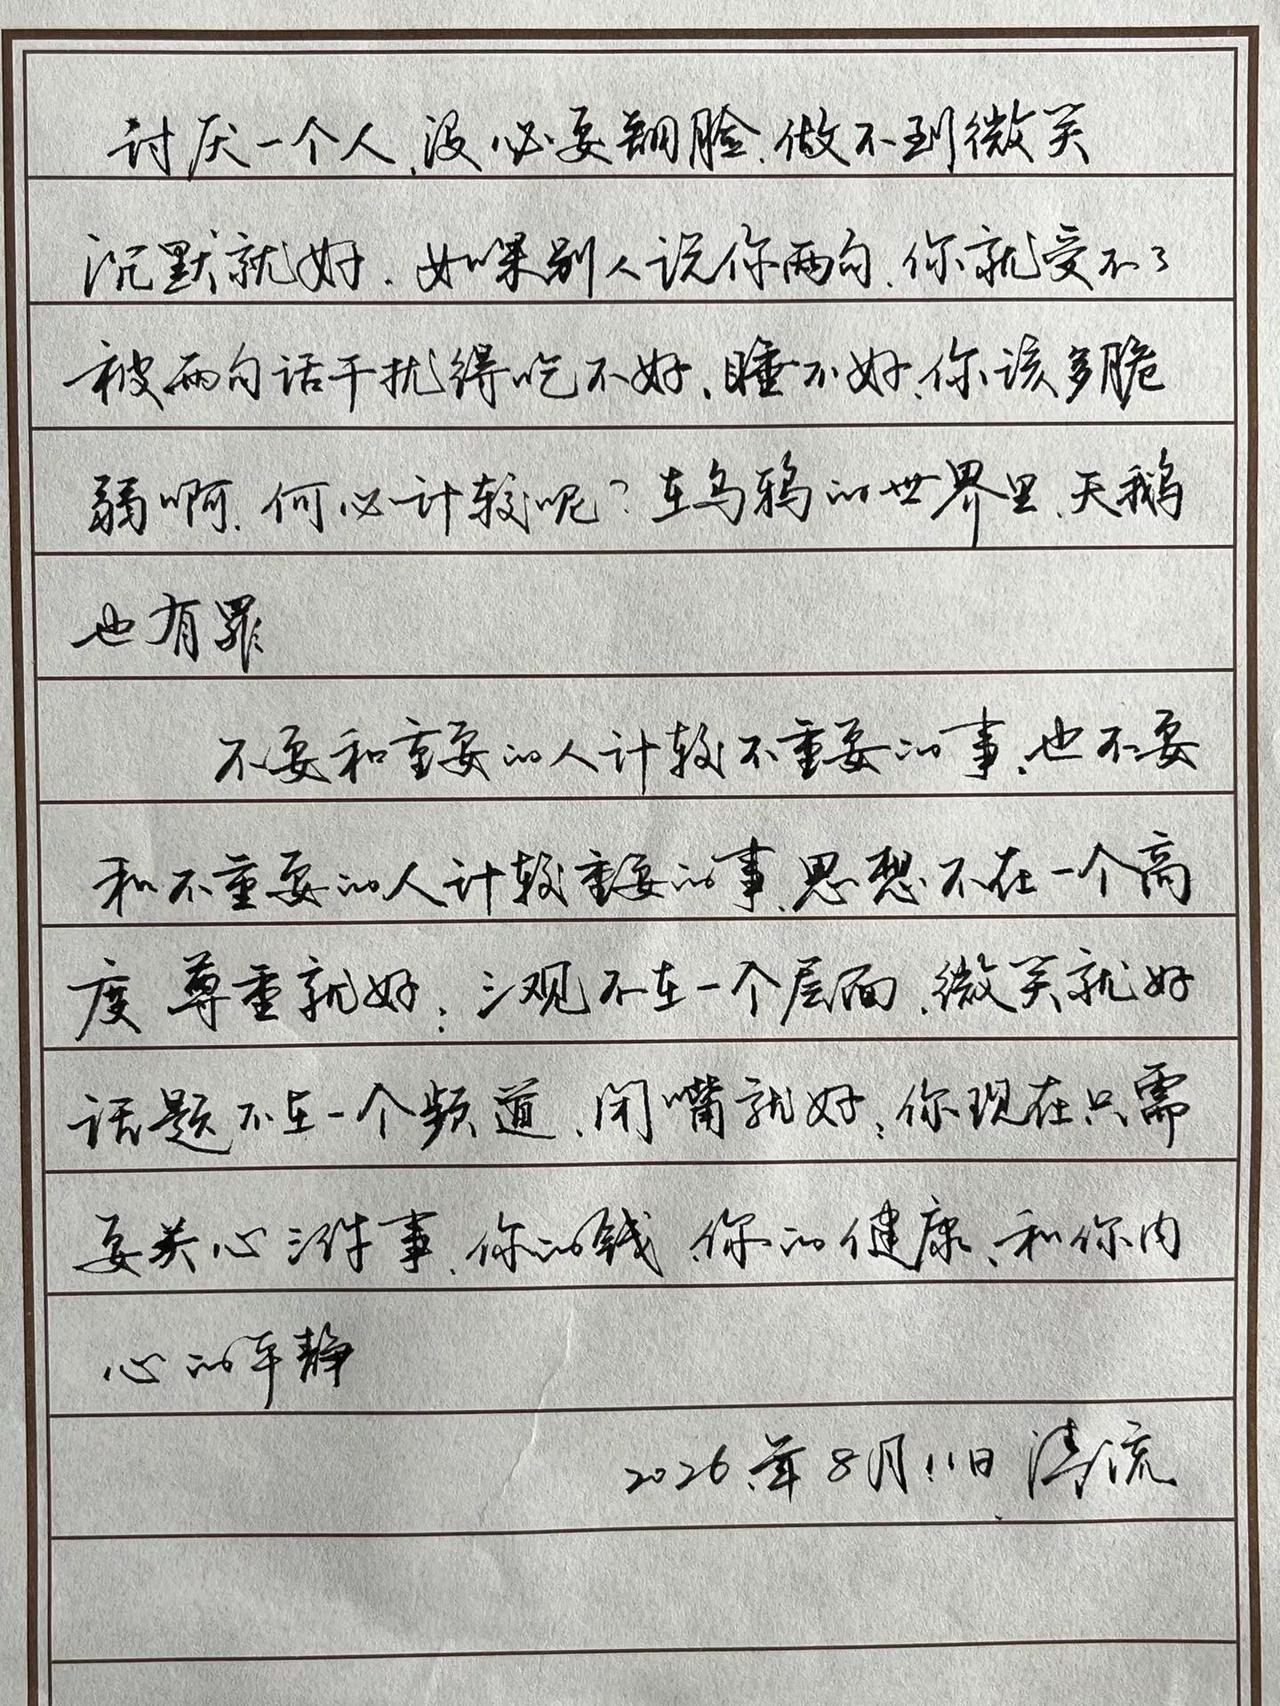 讨厌一个人,没必要翻脸.做不到微笑
沉默就好.如果别人说你两句.你就受不了
被两句话干扰得吃不好、睡不好.你该多脆
弱啊.何必计较呢?在乌鸦的世界里.天鹅
也有罪
不要和重要的人计较不重要的事、也不要
和不重要的人计较重要的事.思想不在一个高
度 尊重就好;三观不在一个层面.微笑就好
话题不在一个频道.闭嘴就好;你现在只需
要关心三件事.你的钱.你的健康、和你内
心的平静
2026年8月11日 清流